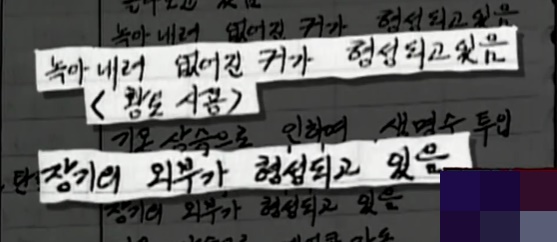 녹아내려 없어진 귀가 형성되고 있음
녹아 내려 없어진 귀가 형성되고 있음
< 황토 사용 >
기온 상승으로 인하여 생명수 투입
장기의 외부가 형성되고 있음
장기의 외부가 형성되고 있음